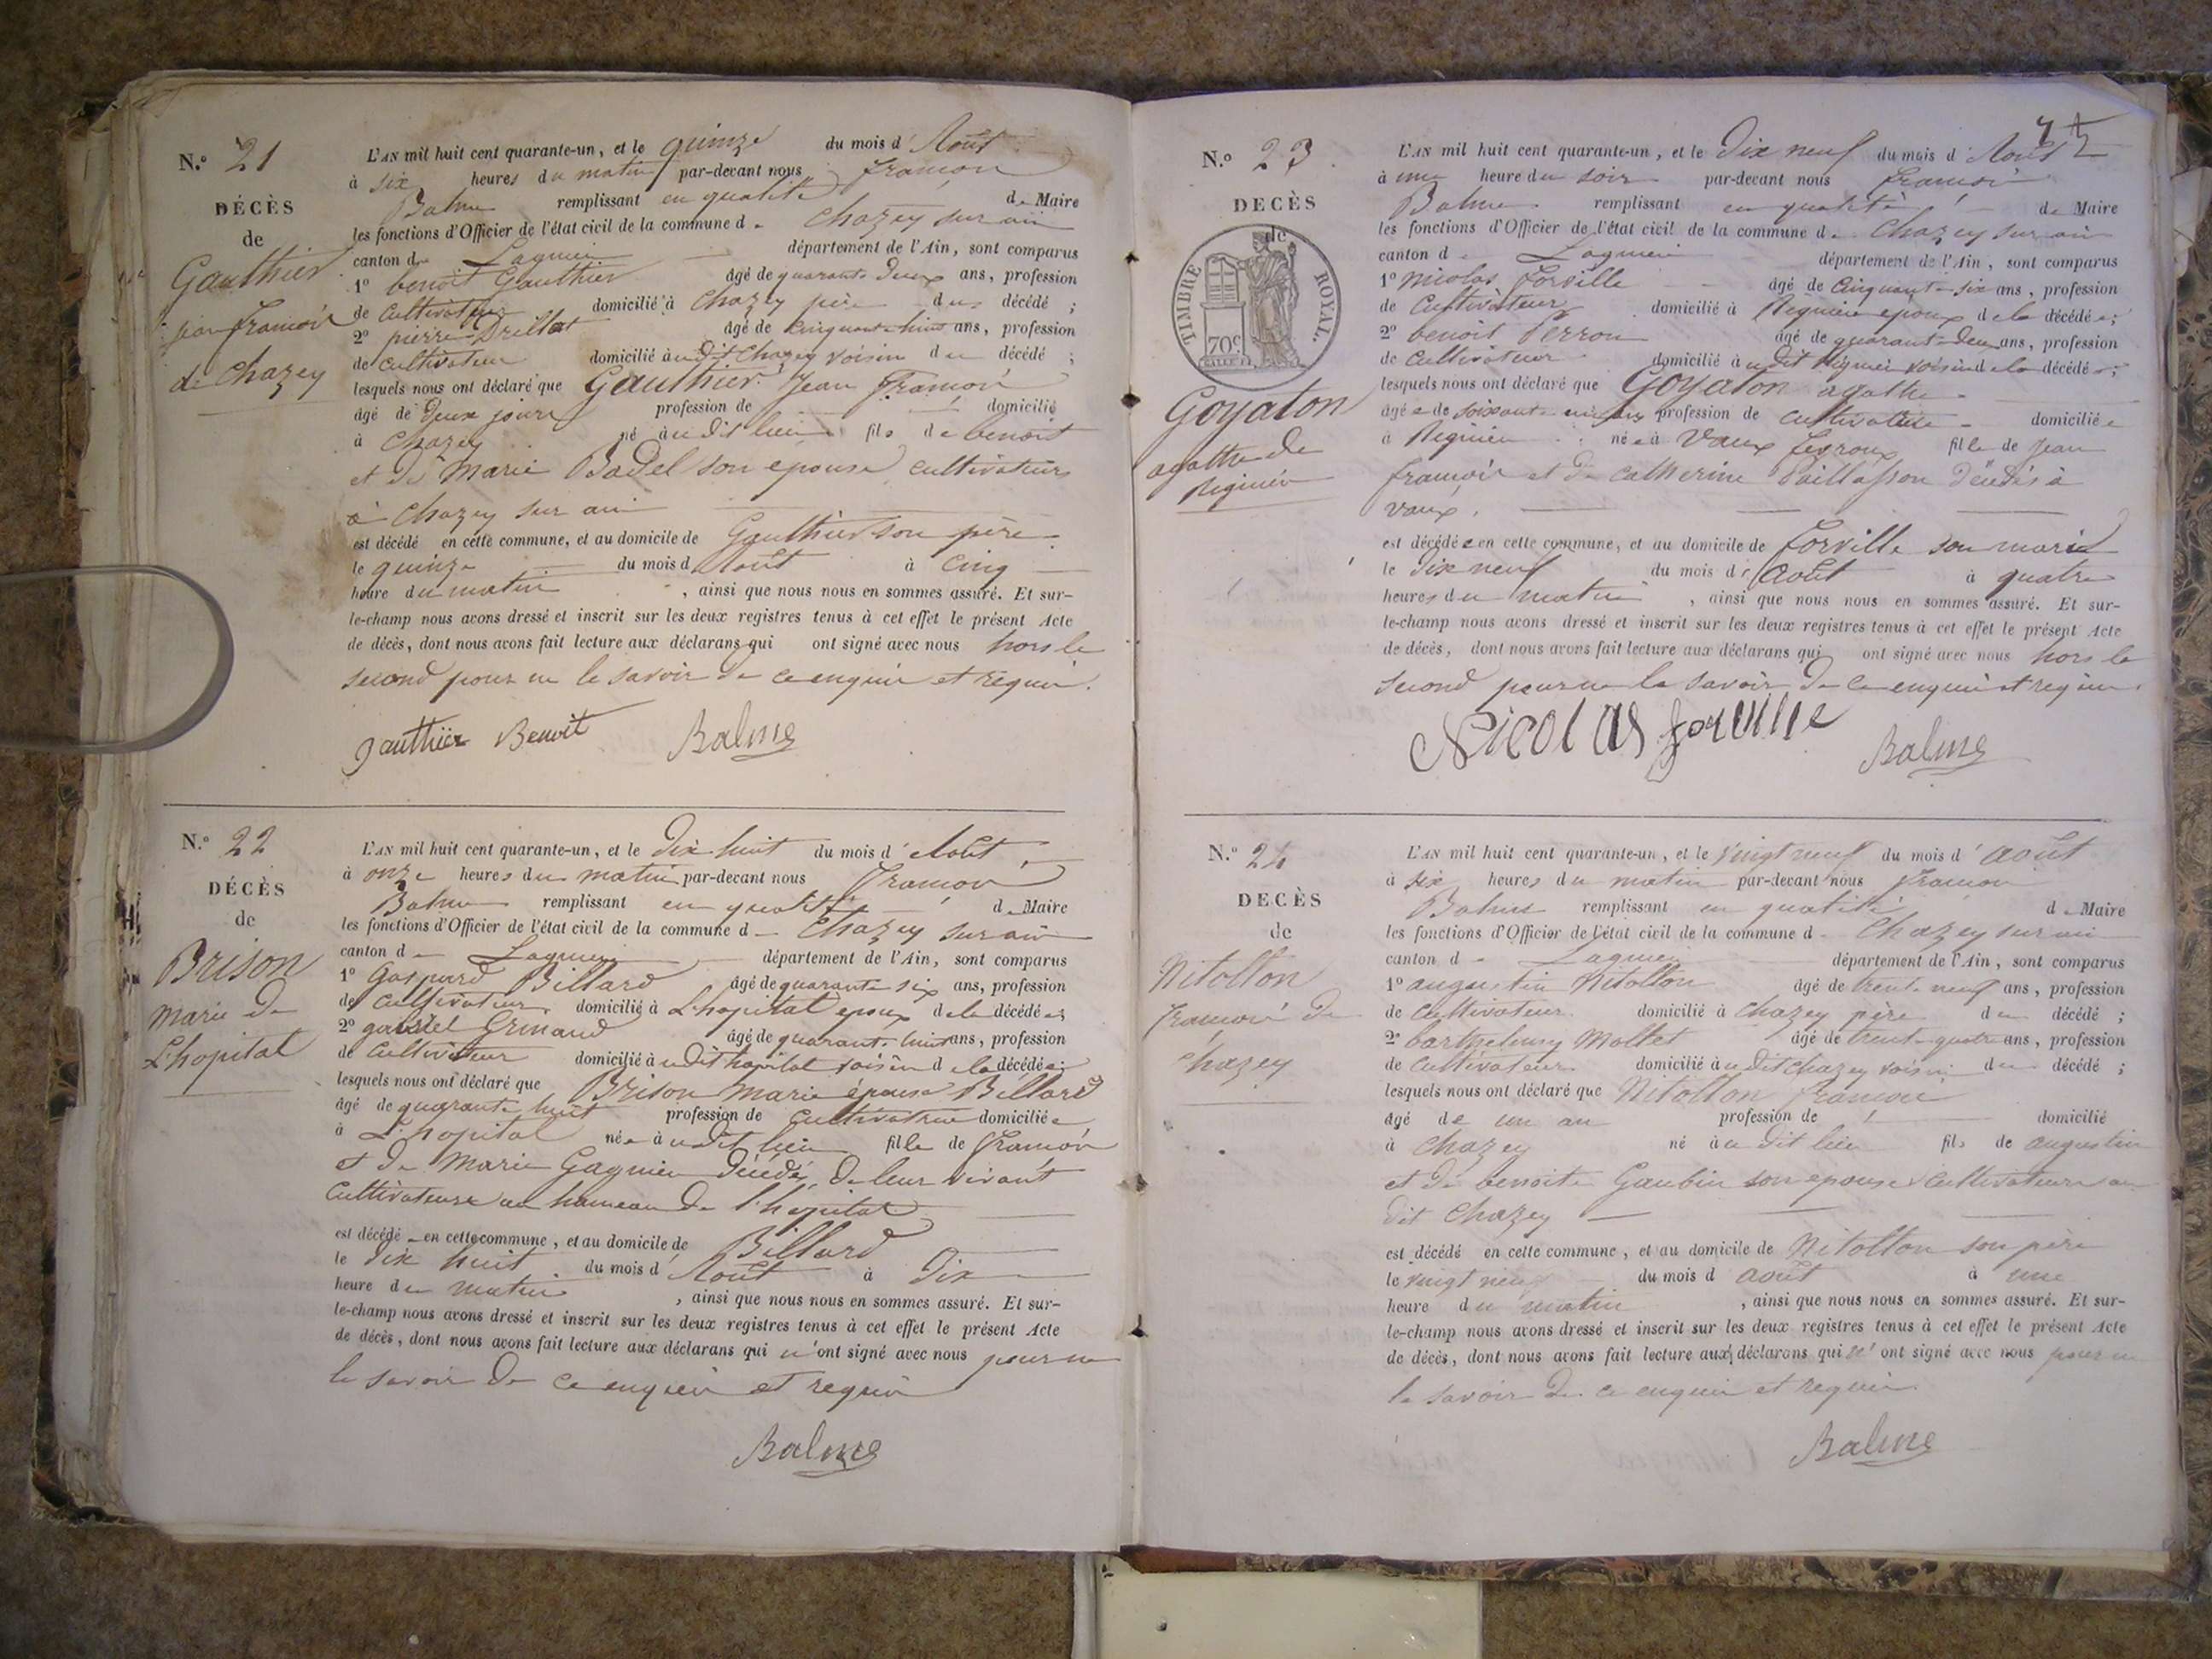 N.º 21
DÉCÈS
de
Gauthier
jean françois
de Chazey
L'AN mil huit cent quarante-un, et le quinze du mois d'Août
à six heures du matin par-devant nous françois
Balme remplissant en qualité de Maire
les fonctions d'Officier de l'état civil de la commune de Chazey sur ain
canton de Lagnieu département de l'Ain, sont comparus
1º benoit Gauthier âgé de quarante deux ans, profession
de Cultivateur domicilié à Chazey père du décédé ;
2º pierre Drillat âgé de cinquante huit ans, profession
de Cultivateur domicilié audit Chazey voisin du décédé ;
lesquels nous ont déclaré que Gauthier Jean François
âgé de Deux jours profession de domicilié
à Chazey né au dit lieu fils de benoit
et De Marie Badel son epouse cultivateurs
à Chazey sur ain
est décédé en cette commune, et au domicile de Gauthier son père
le quinze du mois d Août à Cinq
heure du matin , ainsi que nous nous en sommes assuré. Et sur-
le-champ nous avons dressé et inscrit sur les deux registres tenus à cet effet le présent Acte
de décès, dont nous avons fait lecture aux déclarans qui ont signé avec nous hors le
second pour ne le savoir de ce enquis et requis.
gauthier Benoit Balme
N.º 22
DÉCÈS
de
Brison
marie de
L'hopital
L'AN mil huit cent quarante-un, et le Dix huit du mois d'Août
à onze heures du matin par-devant nous françois
Balme remplissant en qualité de Maire
les fonctions d'Officier de l'état civil de la commune de Chazey sur ain
canton de Lagnieu département de l'Ain, sont comparus
1º Gaspard Billard âgé de quarante six ans, profession
de Cultivateur domicilié à L'hopital epoux de la décédée ;
2º gabriel Grinand âgé de quarante huit ans, profession
de Cultivateur domicilié audit hopital voisin de la décédée ;
lesquels nous ont déclaré que Brison Marie épouse Billard
âgé de quarante huit profession de Cultivatrice domiciliée
à L'hopital née audit lieu fille de François
et De Marie Gagnieu décédés, De leur vivant
Cultivateurs au hameau De l'hopital
est décédé en cette commune, et au domicile de Billard
le Dix huit du mois d Août à Dix
heure du matin , ainsi que nous nous en sommes assuré. Et sur-
le-champ nous avons dressé et inscrit sur les deux registres tenus à cet effet le présent Acte
de décès, dont nous avons fait lecture aux déclarans qui n'ont signé avec nous pour ne
le savoir De ce enquis et requis
Balme
N.º 23
DÉCÈS
de
TIMBRE ROYAL.
70c
Goyaton
agathe de
Rignieu
L'AN mil huit cent quarante-un, et le Dix neuf du mois d'Août
à une heure du soir par-devant nous françois
Balme remplissant en qualité de Maire
les fonctions d'Officier de l'état civil de la commune de Chazey sur ain
canton de Lagnieu département de l'Ain, sont comparus
1º Nicolas Forville âgé de Cinquante six ans, profession
de Cultivateur domicilié à Rignieu epoux de la décédée ;
2º benoit Perron âgé de quarante deux ans, profession
de Cultivateur domicilié audit Rignieu voisin de la décédée ;
lesquels nous ont déclaré que Goyaton agathe
âgée de soixante profession de cultivatrice domiciliée
à Rignieu née à Vaux Fevroux fille de jean
françois et De Catherine Paillasson Décédés à
vaux.
est décédée en cette commune, et au domicile de Forville son mari
le Dix neuf du mois d'Août à quatre
heures du matin , ainsi que nous nous en sommes assuré. Et sur-
le-champ nous avons dressé et inscrit sur les deux registres tenus à cet effet le présent Acte
de décès, dont nous avons fait lecture aux déclarans qui ont signé avec nous hors le
second pour ne le savoir De ce enquis et requis.
Nicolas forville Balme
N.º 24
DÉCÈS
de
Nitollon
françois de
Chazey
L'AN mil huit cent quarante-un, et le Vingt neuf du mois d'août
à six heures du matin par-devant nous françois
Balme remplissant en qualité de Maire
les fonctions d'Officier de l'état civil de la commune de Chazey sur ain
canton de Lagnieu département de l'Ain, sont comparus
1º augustin Nitollon âgé de trente neuf ans, profession
de Cultivateur domicilié à Chazey père du décédé ;
2º barthelemy Mollet âgé de trente quatre ans, profession
de Cultivateur domicilié audit Chazey voisin du décédé ;
lesquels nous ont déclaré que Nitollon françois
âgé de un an profession de domicilié
à Chazey né au dit lieu fils de augustin
et De benoite Gaubin son epouse Cultivateurs au
dit Chazey
est décédé en cette commune, et au domicile de Nitollon son père
le vingt neuf du mois d août à une
heure du matin , ainsi que nous nous en sommes assuré. Et sur-
le-champ nous avons dressé et inscrit sur les deux registres tenus à cet effet le présent Acte
de décès, dont nous avons fait lecture aux déclarans qui n'ont signé avec nous pour ne
le savoir De ce enquis et requis
Balme